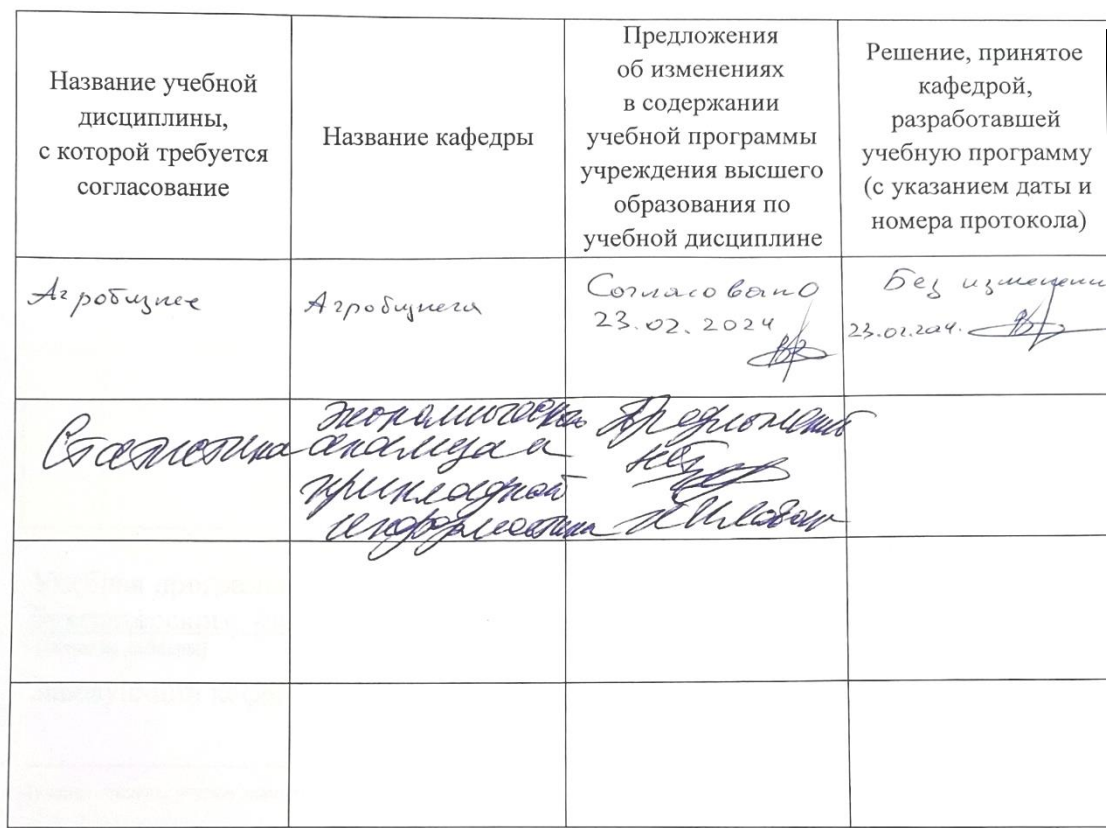 Название учебной
дисциплины,
с которой требуется
согласование
Название кафедры
Предложения
об изменениях
в содержании
учебной программы
учреждения высшего
образования по
учебной дисциплине
Решение, принятое
кафедрой,
разработавшей
учебную программу
(с указанием даты и
номера протокола)
Агробизнес
Агробизнеса
Согласовано
23.02.2024
Без изменени
Статистика
экономического
анализа и
прикладной
информатики
Предложений
нет